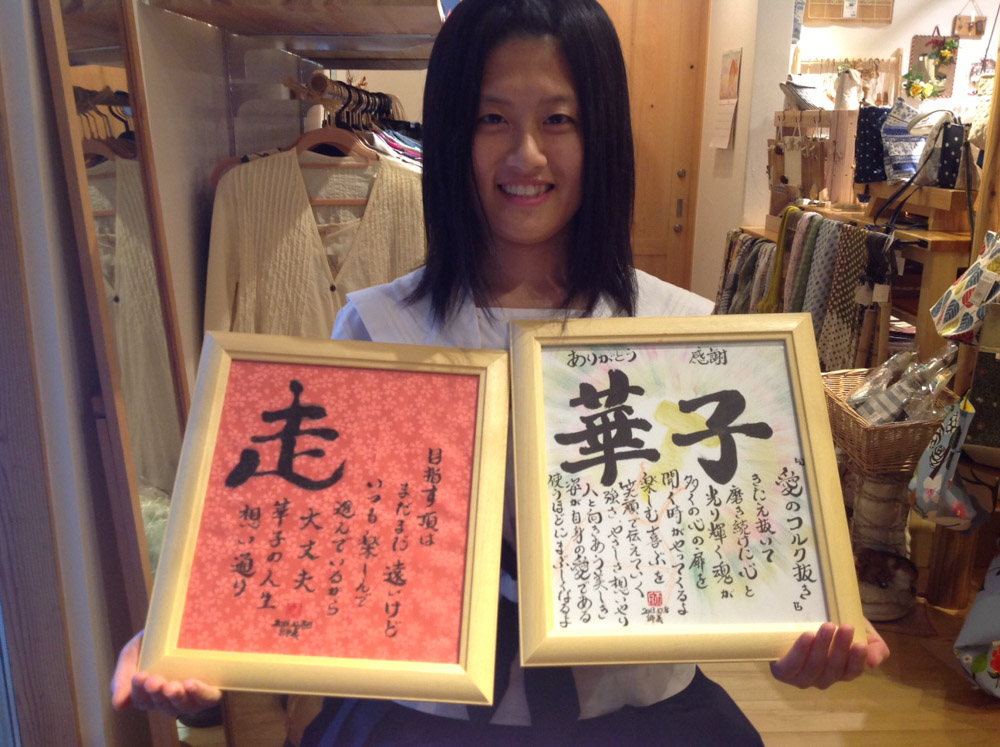 走
目指す頂は
まだまだ遠いけど
いつも楽しんで
進んでいるから
大丈夫
華子の人生
想い通り
ありがとう 感謝
華子
『愛のコルク抜き』
きたえ抜いて
磨き続けた心と
光り輝く魂が
多くの心の扉を
開く時がやってくるよ
楽しむ喜ぶを
笑顔で伝えていく
強さやさしさ想いやり
人と向きあう美しき
姿が自身の愛である
使うほどにまぶしくなるよ